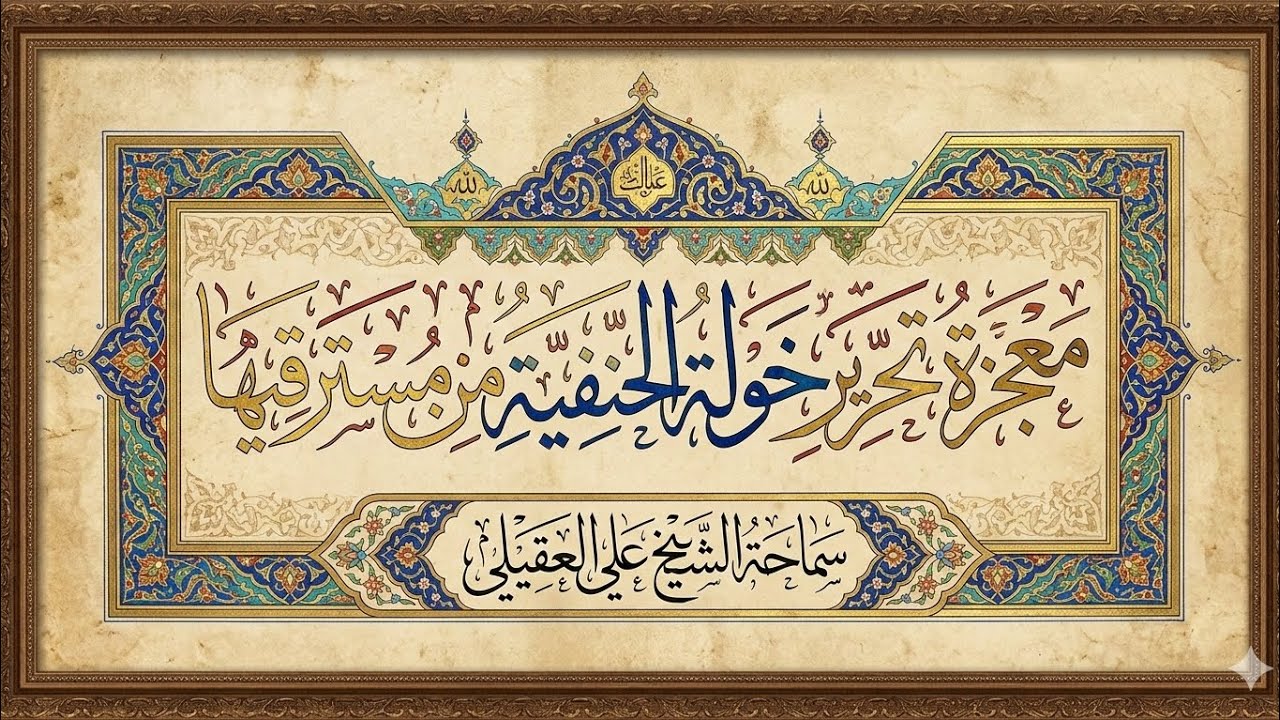 الله
الله
مَعْجَزَةُ تَحْرِيرِ خَوْلَةَ الْحَنَفِيَّةِ مِنْ مُسْتَرِقِيهَا
سَمَاحَةُ الشَّيْخِ عَلِي الْعَقِيلِي